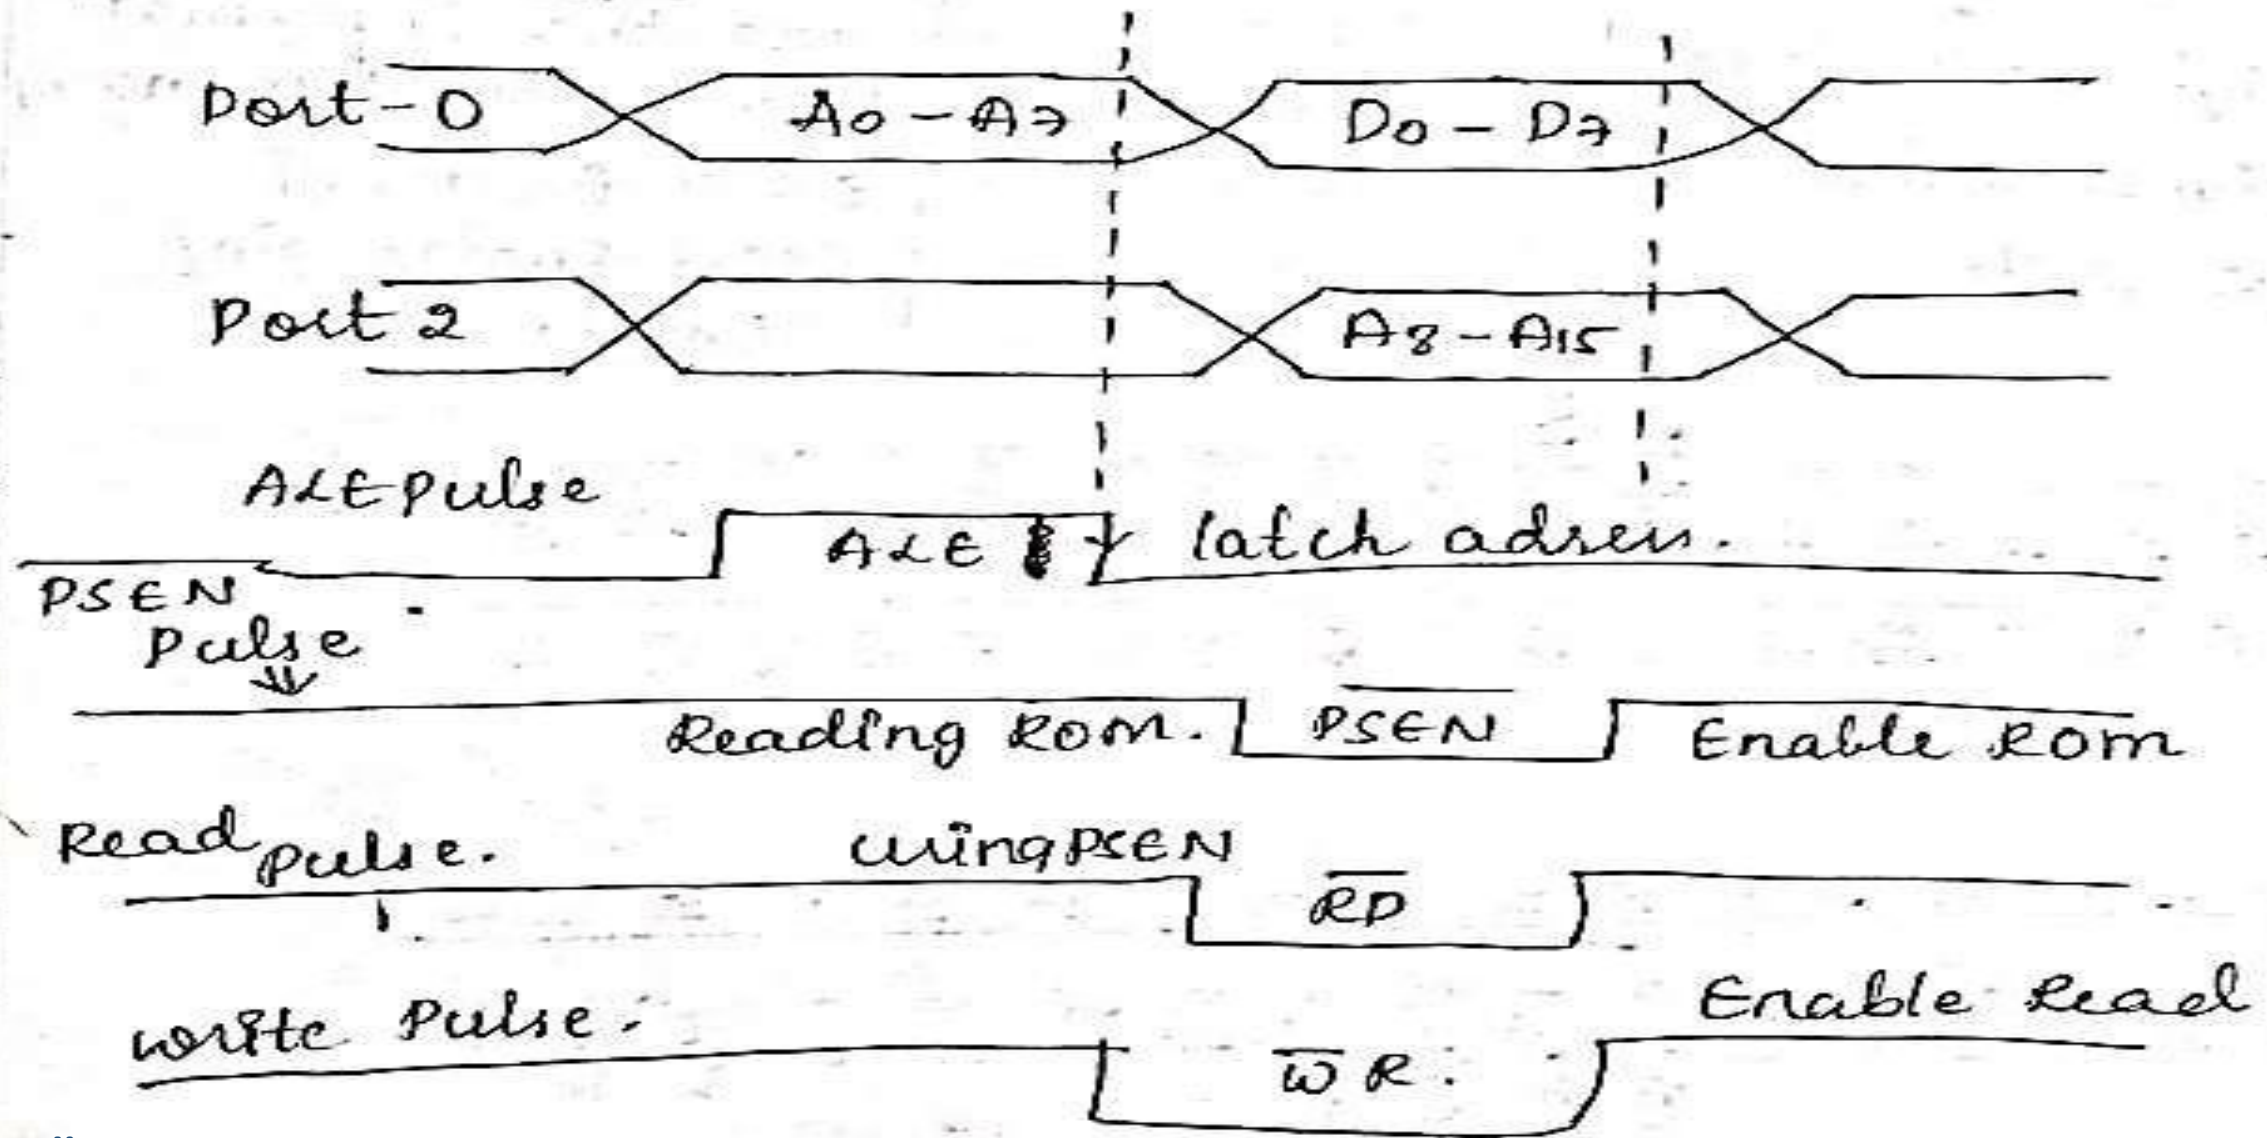 Port-0 A0-A7 D0-D7
Port 2 A8-A15
ALE pulse
ALE latch adress.
PSEN
Pulse
Reading ROM. PSEN Enable ROM
Read pulse. using PSEN
RD
Enable Read
write Pulse.
WR.